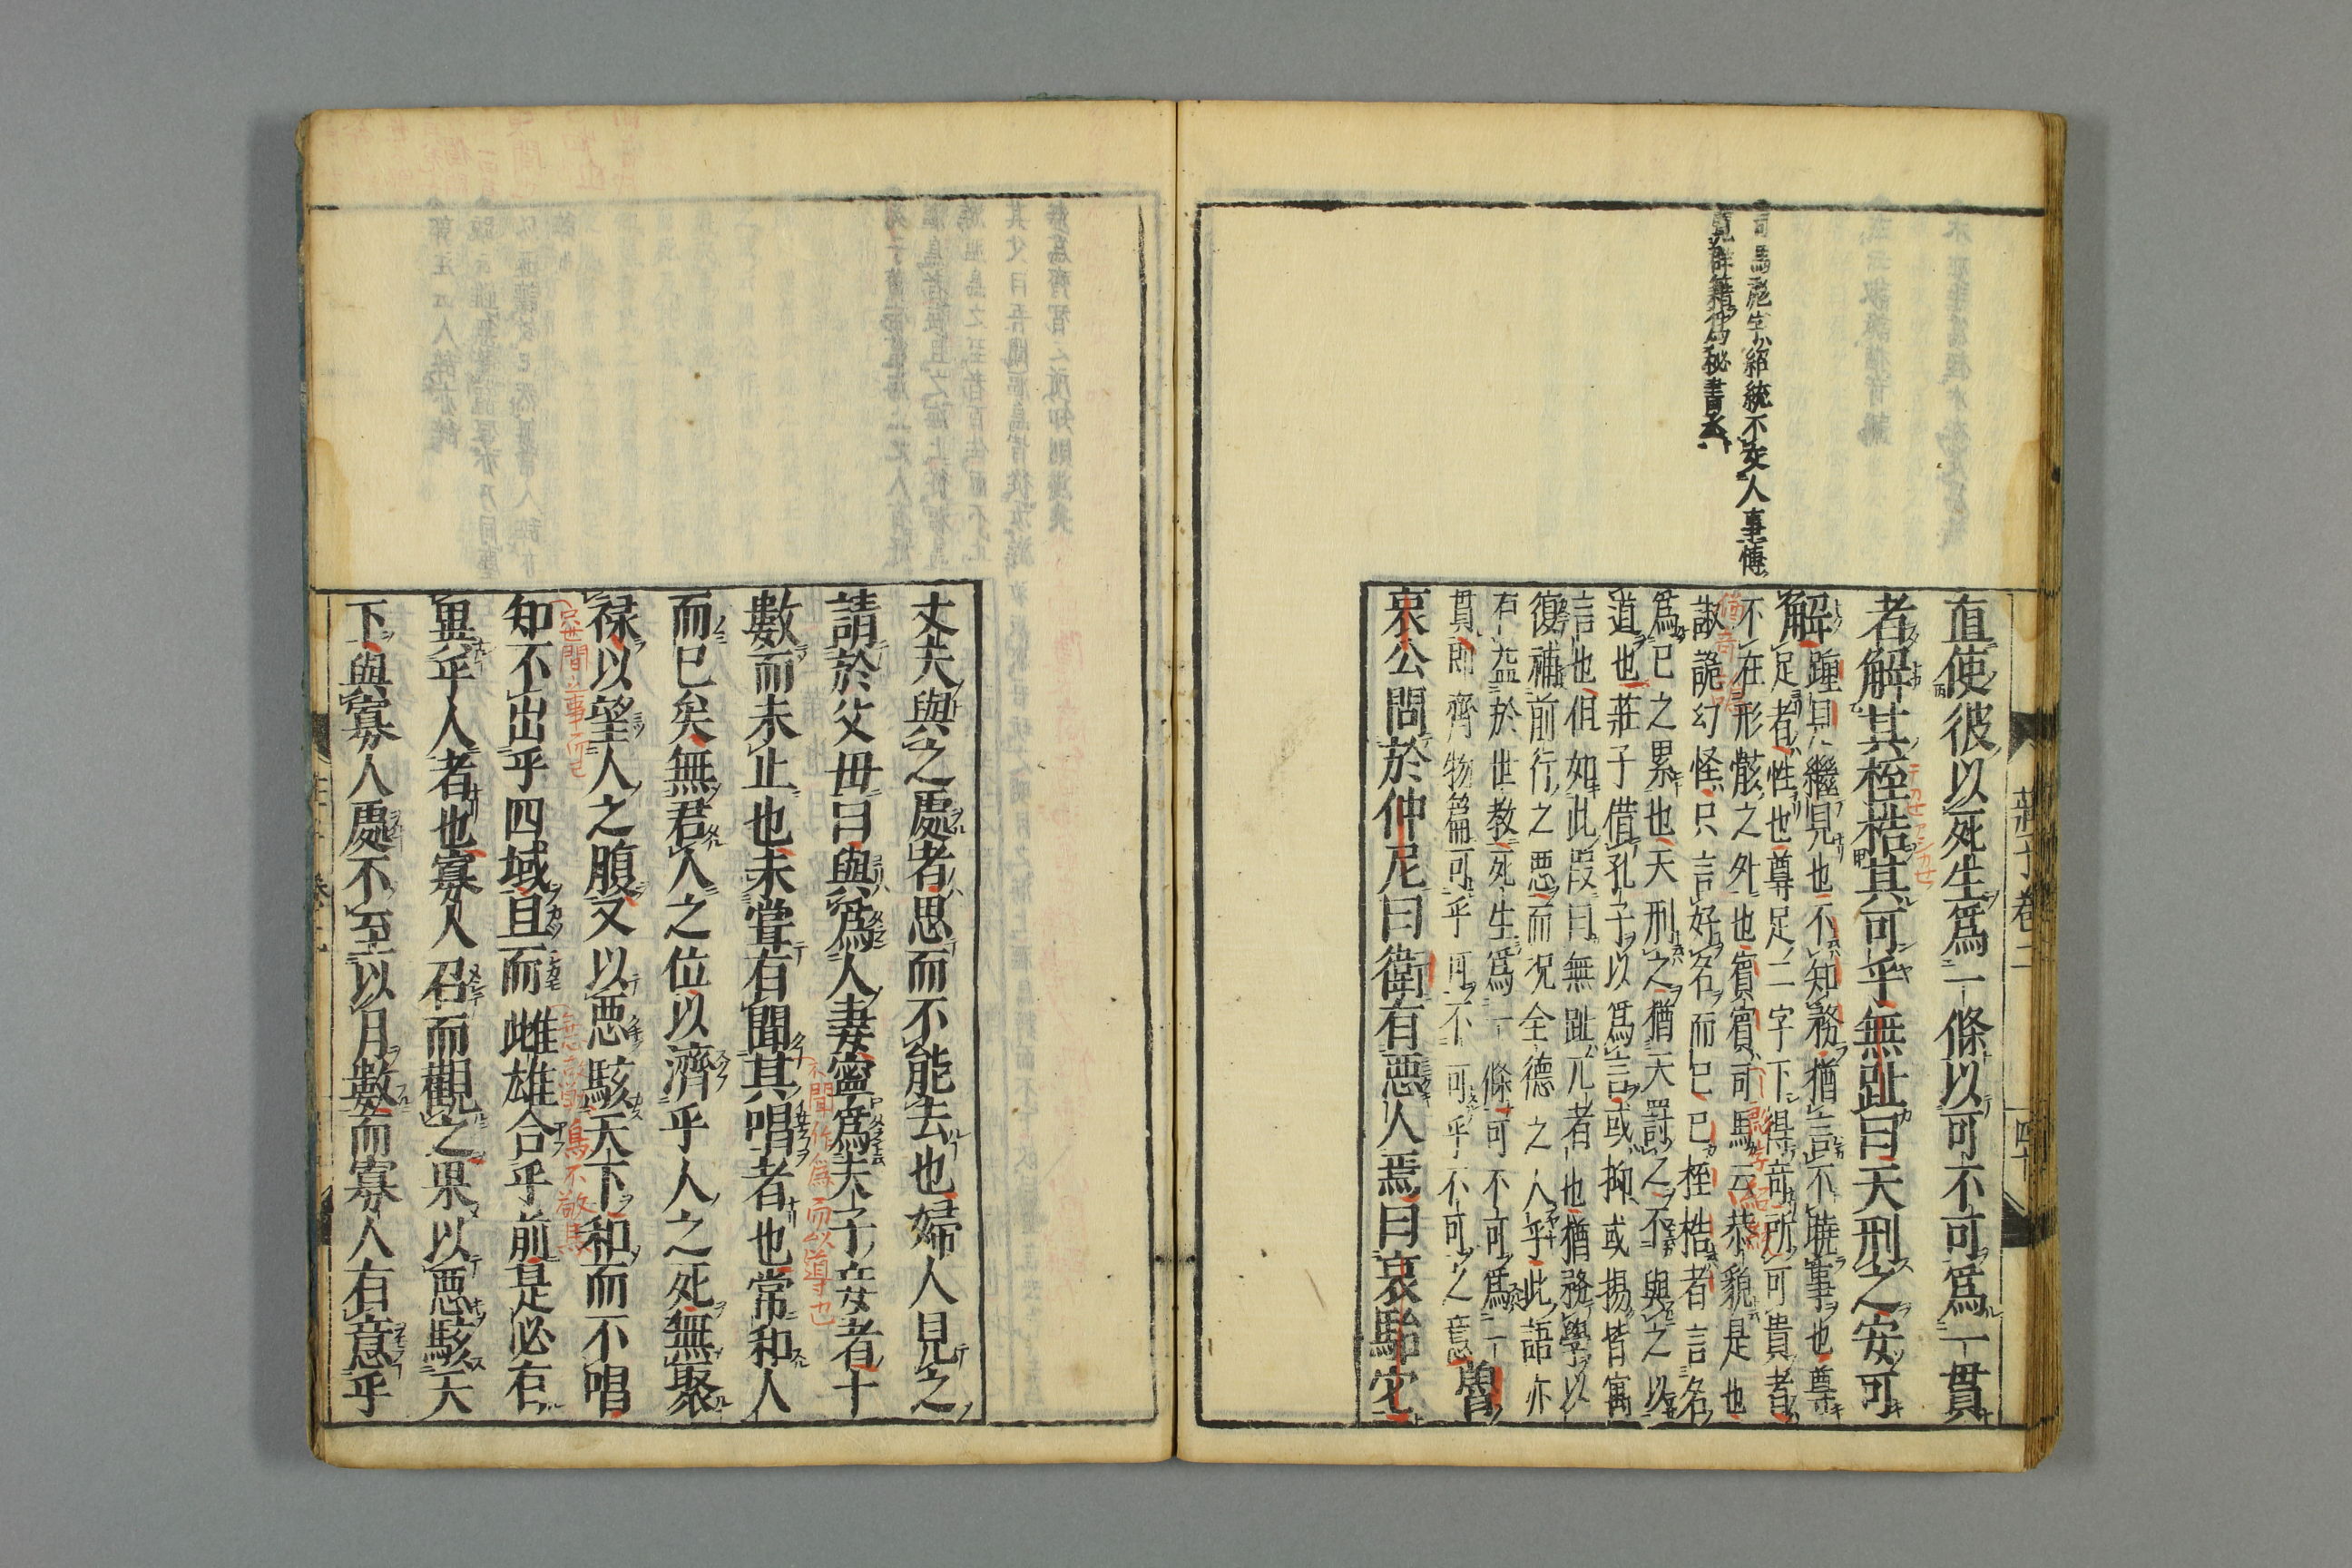 司馬彪字紹統不交人事博
覧群籍仕爲秘書丞
直使彼以死生爲一條以可不可爲一貫
者解其桎梏其可乎無趾曰天刑之安可
解踵見繼見也不知務猶言不曉事也尊
足者性也尊足二字下得奇所可貴者
不在形骸之外也賓賓司馬云恭貌是也
諔詭幻怪只言好名而已桎梏者言名
爲已之累也天刑之猶天罰之不與之以
道也莊子借孔子以爲言或抑或揚皆寓
言也但如此段曰無趾兀者也猶務學以
復補前行之惡而况全德之人乎此語亦
有益於世教死生爲一條可不可爲一
貫則齊物篇可乎可不可乎不可之意魯
哀公問於仲尼曰衛有惡人焉曰哀駘它
莊子卷二
四十
丈夫與之處者思而不能去也婦人見之
請於父母曰與爲人妻寧爲夫子妾者十
數而未止也未嘗有聞其唱者也常和人
不聞作爲而以道導也
而已矣無君人之位以濟乎人之死無聚
禄以望人之腹又以惡駭天下和而不唱
只世間之事而已
知不出乎四域且而雌雄合乎前是必有
異乎人者也寡人召而觀之果以惡駭天
下與寡人處不至以月數而寡人有意乎